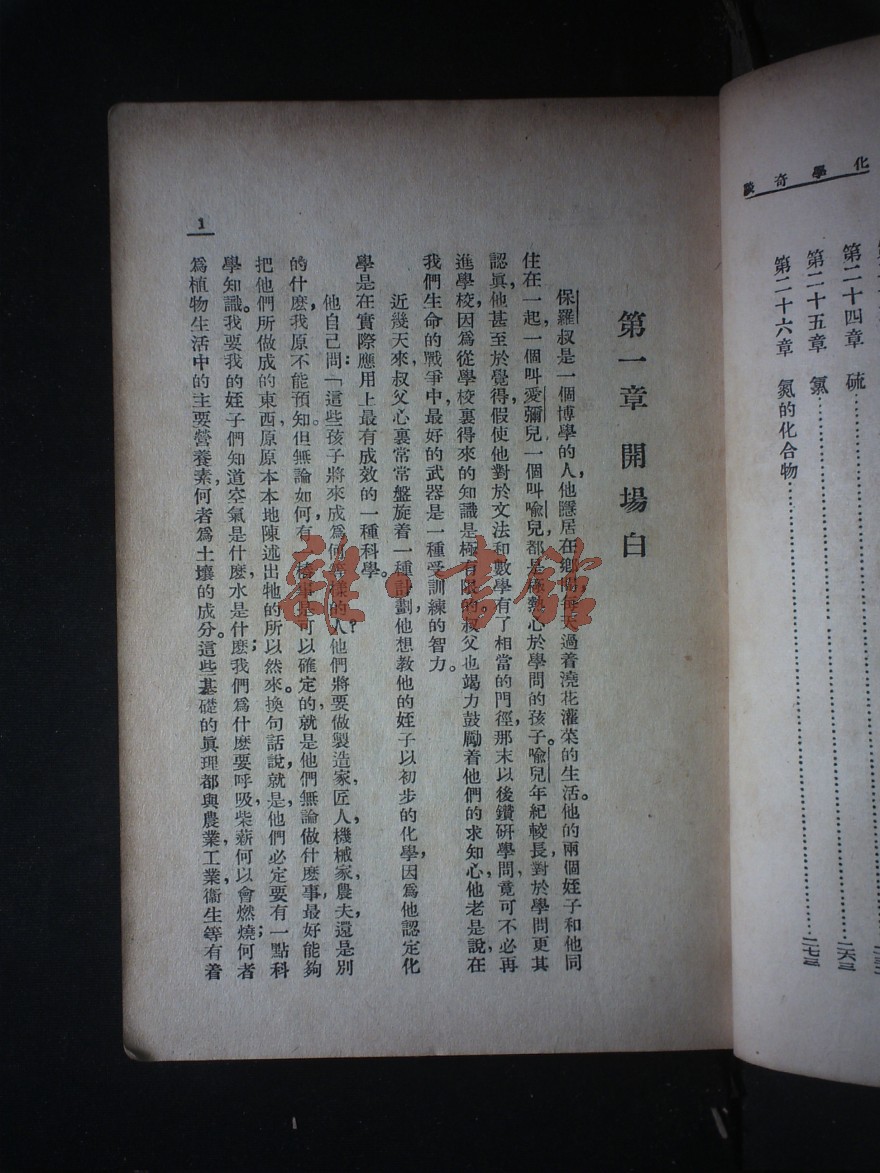 化學奇談
第二十四章 硫
二六三
第二十五章 氯
二七三
第二十六章 氮的化合物
第一章 開場白
保羅叔是一個博學的人，他隱居在鄉間，每天過着澆花灌菜的生活。他的兩個姪子和他同
住在一起，一個叫愛彌兒，一個叫喩兒，都是極熱心於學問的孩子。喩兒年紀較長，對於學問更其
認眞，他甚至於覺得，假使他對於文法和數學有了相當的門徑，那末以後鑽硏學問，竟可不必再
進學校，因爲從學校裏得來的知識是極有限的。叔父也竭力鼓勵着他們的求知心，他老是說在
我們生命的戰爭中，最好的武器是一種受訓練的智力。
近幾天來，叔父心裏常常盤旋着一種計劃，他想敎他的姪子以初步的化學，因爲他認定化
學是在實際應用上最有成效的一種科學。
他自己問：「這些孩子將來成爲何等樣的人？他們將要做製造家，匠人，機械家，農夫，還是別
的什麽，我原不能預知。但無論如何，有一樁事是可以確定的，就是他們無論做什麽事，最好能夠
把他們所做成的東西，原原本本地陳述出牠的所以然來。換句話說，就是，他們必定要有一點科
學知識。我要我的姪子們知道空氣是什麽，水是什麽；我們爲什麽要呼吸，柴薪何以會燃燒；何者
爲植物生活中的主要營養素，何者爲土壤的成分。這些基礎的眞理都與農業，工業，衞生等有着
1
雜·書館